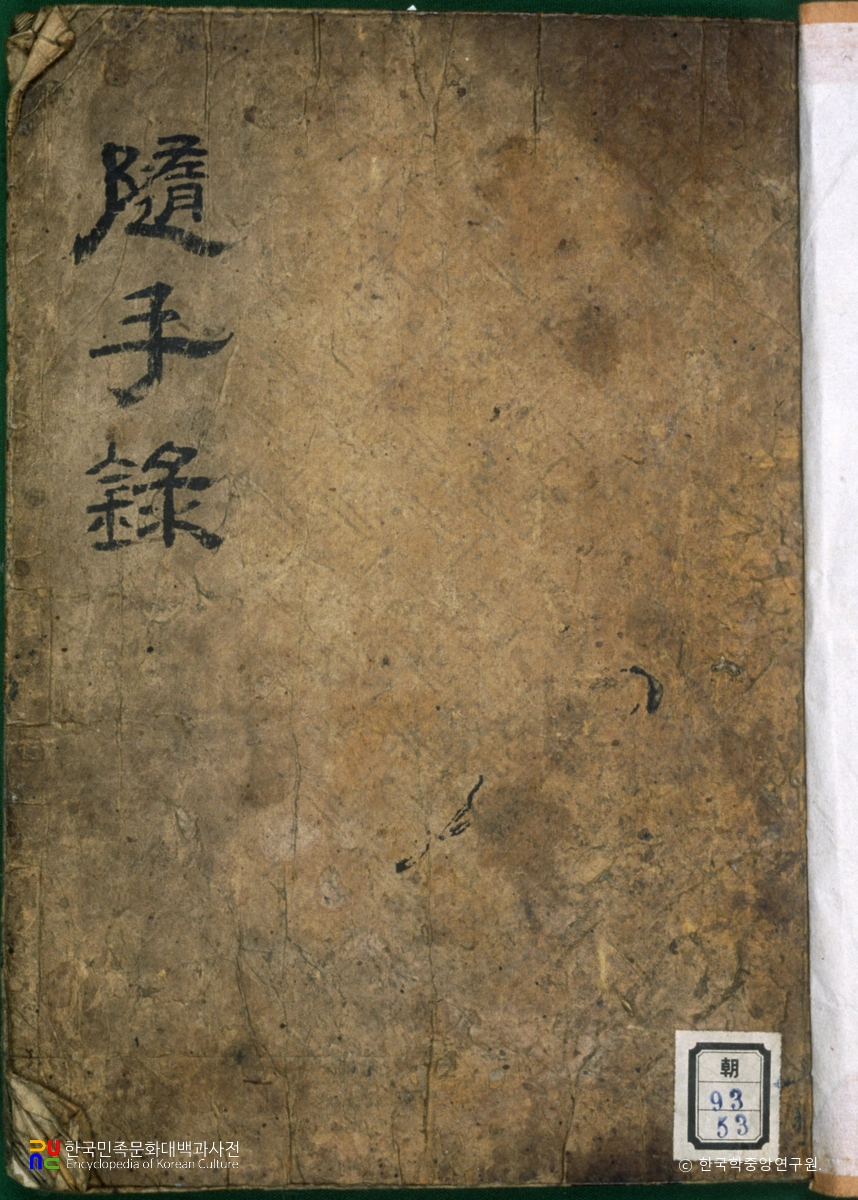 隨手錄
朝
93
53
한국민족문화대백과사전
Encyclopedia of Korean Culture
© 한국학중앙연구원.